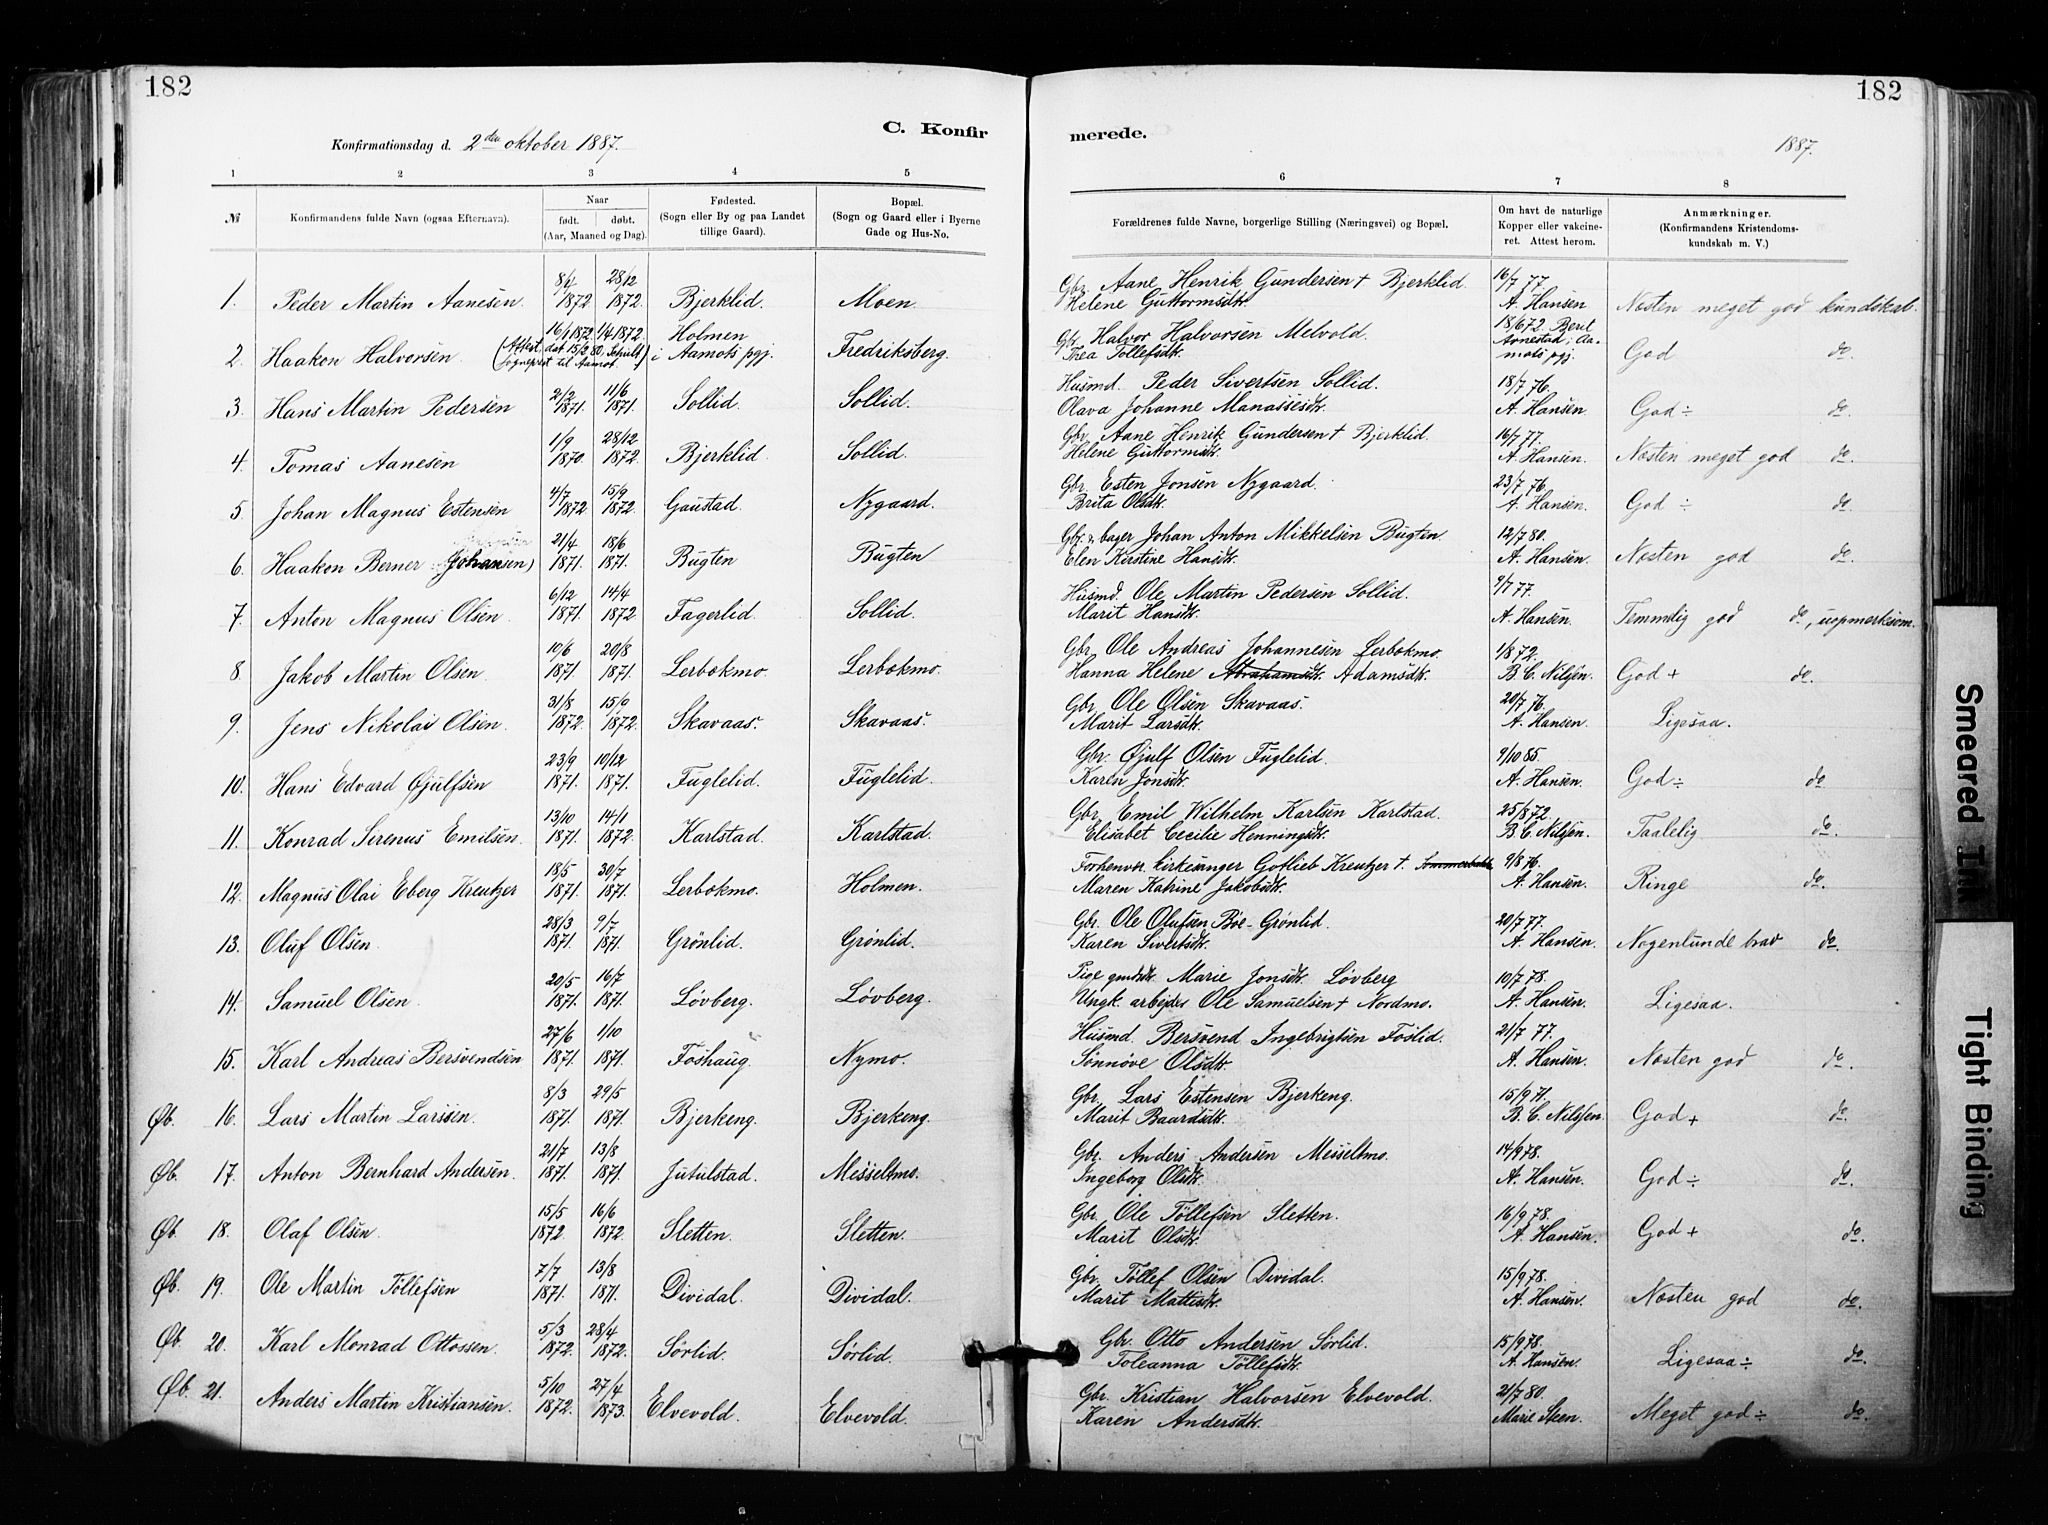 182
182
C. Konfir
merede.
Konfirmationsdag d. 2den oktober 1887.
1887.
1 2 3 4 5 6 7 8
№ Konfirmandens fulde Navn (ogsaa Efternavn). Naar født. døbt. (Aar, Maaned og Dag). Fødested. (Sogn eller By og paa Landet tillige Gaard). Bopæl. (Sogn og Gaard eller i Byerne Gade og Hus-No. Forældrenes fulde Navne, borgerlige Stilling (Næringsvei) og Bopæl. Om havt de naturlige Kopper eller vakcineret. Attest herom. Anmærkninger. (Konfirmandens Kristendomskundskab m. V.)
1. Peder Martin Aanesen. 8/4 1872 28/12 1872. Bjerklid. Moen. Gbr. Aane Henrik Gundersen † Bjerklid. Helene Guttormsdtr. 16/7 77. A. Hansen Næsten meget god kundskab.
2. Haakon Halvorsen (Attest dat 15/2 80, Schult sogneprest til Aamot.) 16/1 1872. 1/4 1872. Holmen i Aamots pgj. Fredriksberg. Gbr. Halvor Halvorsen Melvold. Thea Tollefsdtr. 18/6 72. Berit Arnestad i Aamots pgj. God do.
3. Hans Martin Pedersen 2/2 1871. 11/6 1871. Sollid. Sollid. Husmd. Peder Sivertsen Sollid. Olava Johanne Manassesdtr. 18/7 76. A. Hansen. God ÷ do.
4. Tomas Aanesen 1/9 1870. 28/12 1872. Bjerklid. Sollid. Gbr. Aane Henrik Gundersen † Bjerklid. Helene Guttormsdtr. 16/7 77. A. Hansen. Næsten meget god do.
5. Johan Magnus Estensen 4/7 1872. 15/9 1872. Gaustad. Nygaard. Gbr. Esten Jonsen Nygaard. Brita Olsdtr. 23/7 76. A. Hansen. God ÷ do.
6. Haakon Berner Johansen) 21/4 1871. 18/6 1871. Bugten Bugten Gbr. & bager Johan Anton Mikkelsen Bugten. Elen Kirstine Hansdtr. 12/7 80. A. Hansen. Næsten god do.
7. Anton Magnus Olsen. 6/12 1871. 14/4 1872 Fagerlid. Sollid. Husmd. Ole Martin Pedersen Sollid. Marit Hansdtr. 9/7 77. A. Hansen. Temmelig god do, uopmerksom.
8. Jakob Martin Olsen. 10/6 1871. 20/8 1871. Lerbokmo. Lerbokmo. Gbr. Ole Andreas Johannesen Lerbokmo. Hanna Helene Abrahamsdtr. Adamsdtr. 1/8 72. B. C. Nilsen. God + do.
9. Jens Nikolai Olsen. 31/8 1872. 15/9 1872. Skavaas. Skavaas. Gbr. Ole Olsen Skavaas. Marit Larsdtr. 20/7 76. A. Hansen. Ligesaa.
10. Hans Edvard Øjulfsen 23/9 1871. 10/12 1871. Fuglelid. Fuglelid. Gbr. Øjulf Olsen Fuglelid. Karen Jonsdtr. 9/10 85. A. Hansen. God ÷ do.
11. Konrad Serenus Emilsen. 13/10 1871. 14/1 1872. Karlstad. Karlstad. Gbr. Emil Wilhelm Karlsen Karlstad. Elisabet Cecilie Henningsdtr. 25/8 72. B. C. Nilsen. Taalelig do.
12. Magnus Olai Eberg Kreutzer 18/5 1871. 30/7 1871. Lerbokmo. Holmen. Forhenvr. kirkesanger Gotlieb Kreutzer †. Sommerbakk Maren Katrine Jakobsdtr. 9/8 76. A. Hansen. Ringe do.
13. Oluf Olsen. 28/3 1871. 9/7 1871. Grönlid. Grønlid. Gbr. Ole Olufsen Bøe - Grønlid. Karen Sivertsdtr. 20/7 77. A. Hansen. Nogenlunde brav do.
14. Samuel Olsen. 20/5 1871. 16/7 1871. Løvberg. Løvberg. Pige gmdsdtr. Marie Jonsdtr. Løvberg Ungk. arbejdes Ole Samuelsen † Nordmo. 10/7 78. A. Hansen. Ligesaa.
15. Karl Andreas Bersvendsen 27/6 1871. 1/10 1871. Foshaug. Nymo. Husmd. Bersvend Ingebrigtsen Foslid. Sönnöve Olsdtr. 21/7 77. A. Hansen. Næsten god do.
Øb. 16. Lars Martin Larssen. 8/3 1871. 29/5 1871. Bjerkeng. Bjerkeng. Gbr. Lars Estensen Bjerkeng. Marit Baardsdtr. 15/9 71. B. C. Nilsen. God + do.
Øb. 17. Anton Bernhard Andersen. 21/7 1871. 13/8 1871. Jutulstad. Messeltmo. Gbr. Anders Andersen Messeltmo. Ingeborg Olsdtr. 14/9 78. A. Hansen. God ÷ do.
Øb. 18. Olaf Olsen. 15/5 1872. 16/6 1872. Sletten. Sletten. Gbr. Ole Tøllefsen Sletten. Marit Olsdtr. 16/9 78. A. Hansen. God + do.
Øb. 19. Ole Martin Tøllefsen 7/7 1871. 13/8 1871. Dividal. Dividal. Gbr. Tøllef Olsen Dividal. Marit Mattisdtr. 15/9 78. A. Hansen. Næsten god do.
Øb. 20. Karl Monrad Ottossen. 5/3 1872. 28/4 1872. Sørlid. Sørlid. Gbr. Otto Andersen Sørlid. Toleanna Tøllefsdtr. 15/9 78. A. Hansen. Ligesaa ÷ do.
Øb. 21. Anders Martin Kristiansen. 5/10 1872. 27/4 1873. Elvevold. Elvevold. Gbr. Kristian Halvorsen Elvevold. Karen Andersdtr. 21/7 80. Marie Steen. Meget god ÷ do.
Smeared Ink
Tight Binding